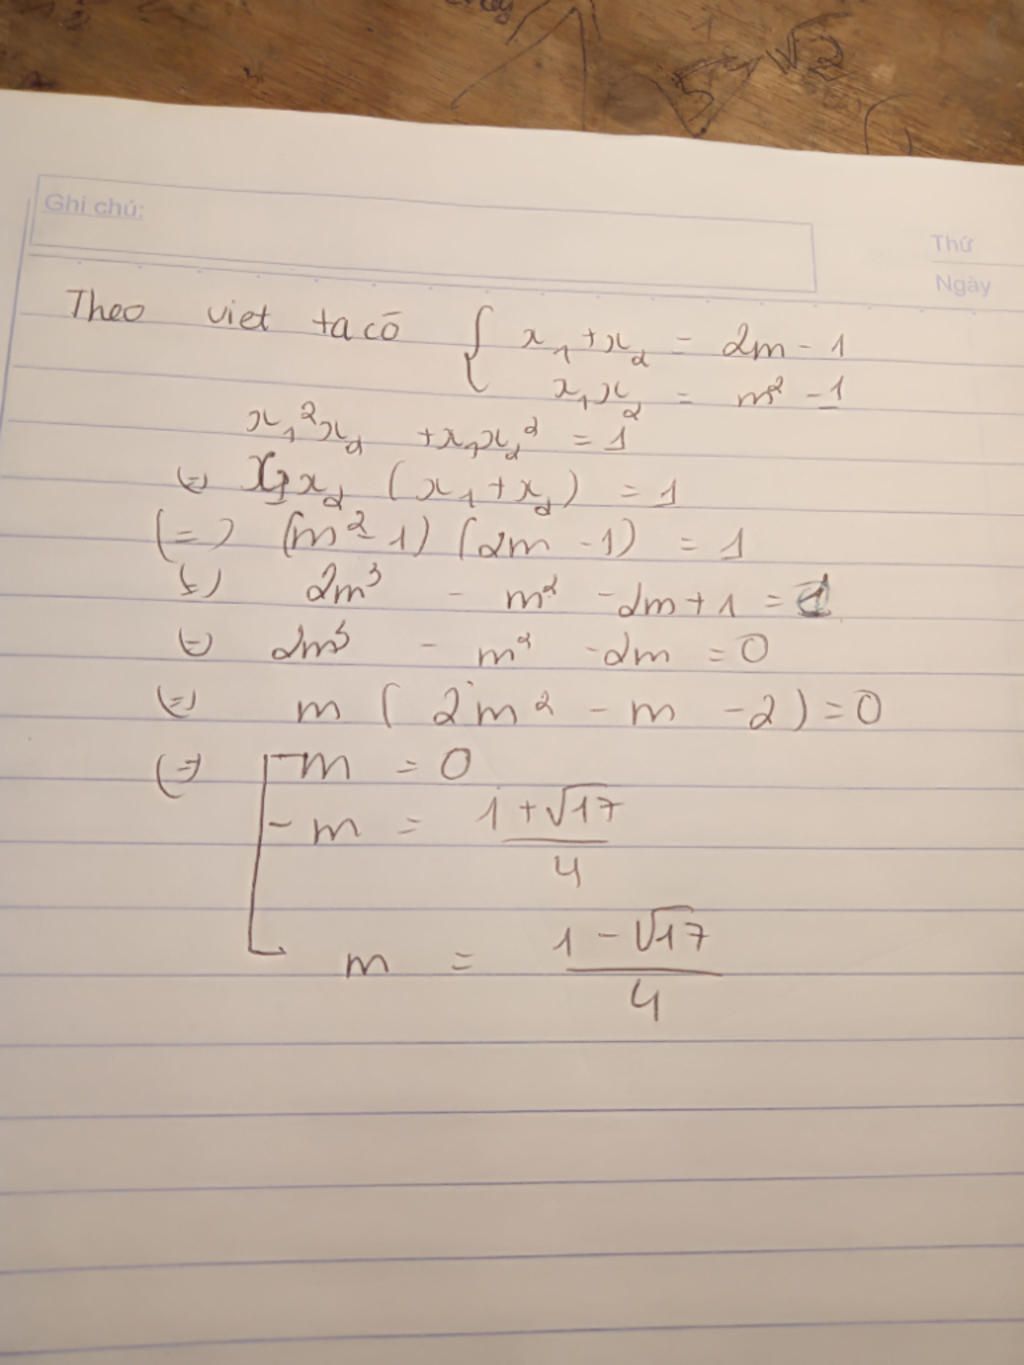 √2
5
Ghi chú:
Thứ
Ngày
Theo viet ta có { x₁ + x₂ = 2m - 1
x₁x₂ = m² - 1
x₁²x₂ + x₁x₂² = 1
(=) x₁x₂ (x₁ + x₂) = 1
(=) (m² - 1) (2m - 1) = 1
(=) 2m³ - m² - 2m + 1 = 1
(=) 2m³ - m² - 2m = 0
(=) m ( 2m² - m - 2 ) = 0
(=) [ m = 0
m = (1 + √17)/4
m = (1 - √17)/4